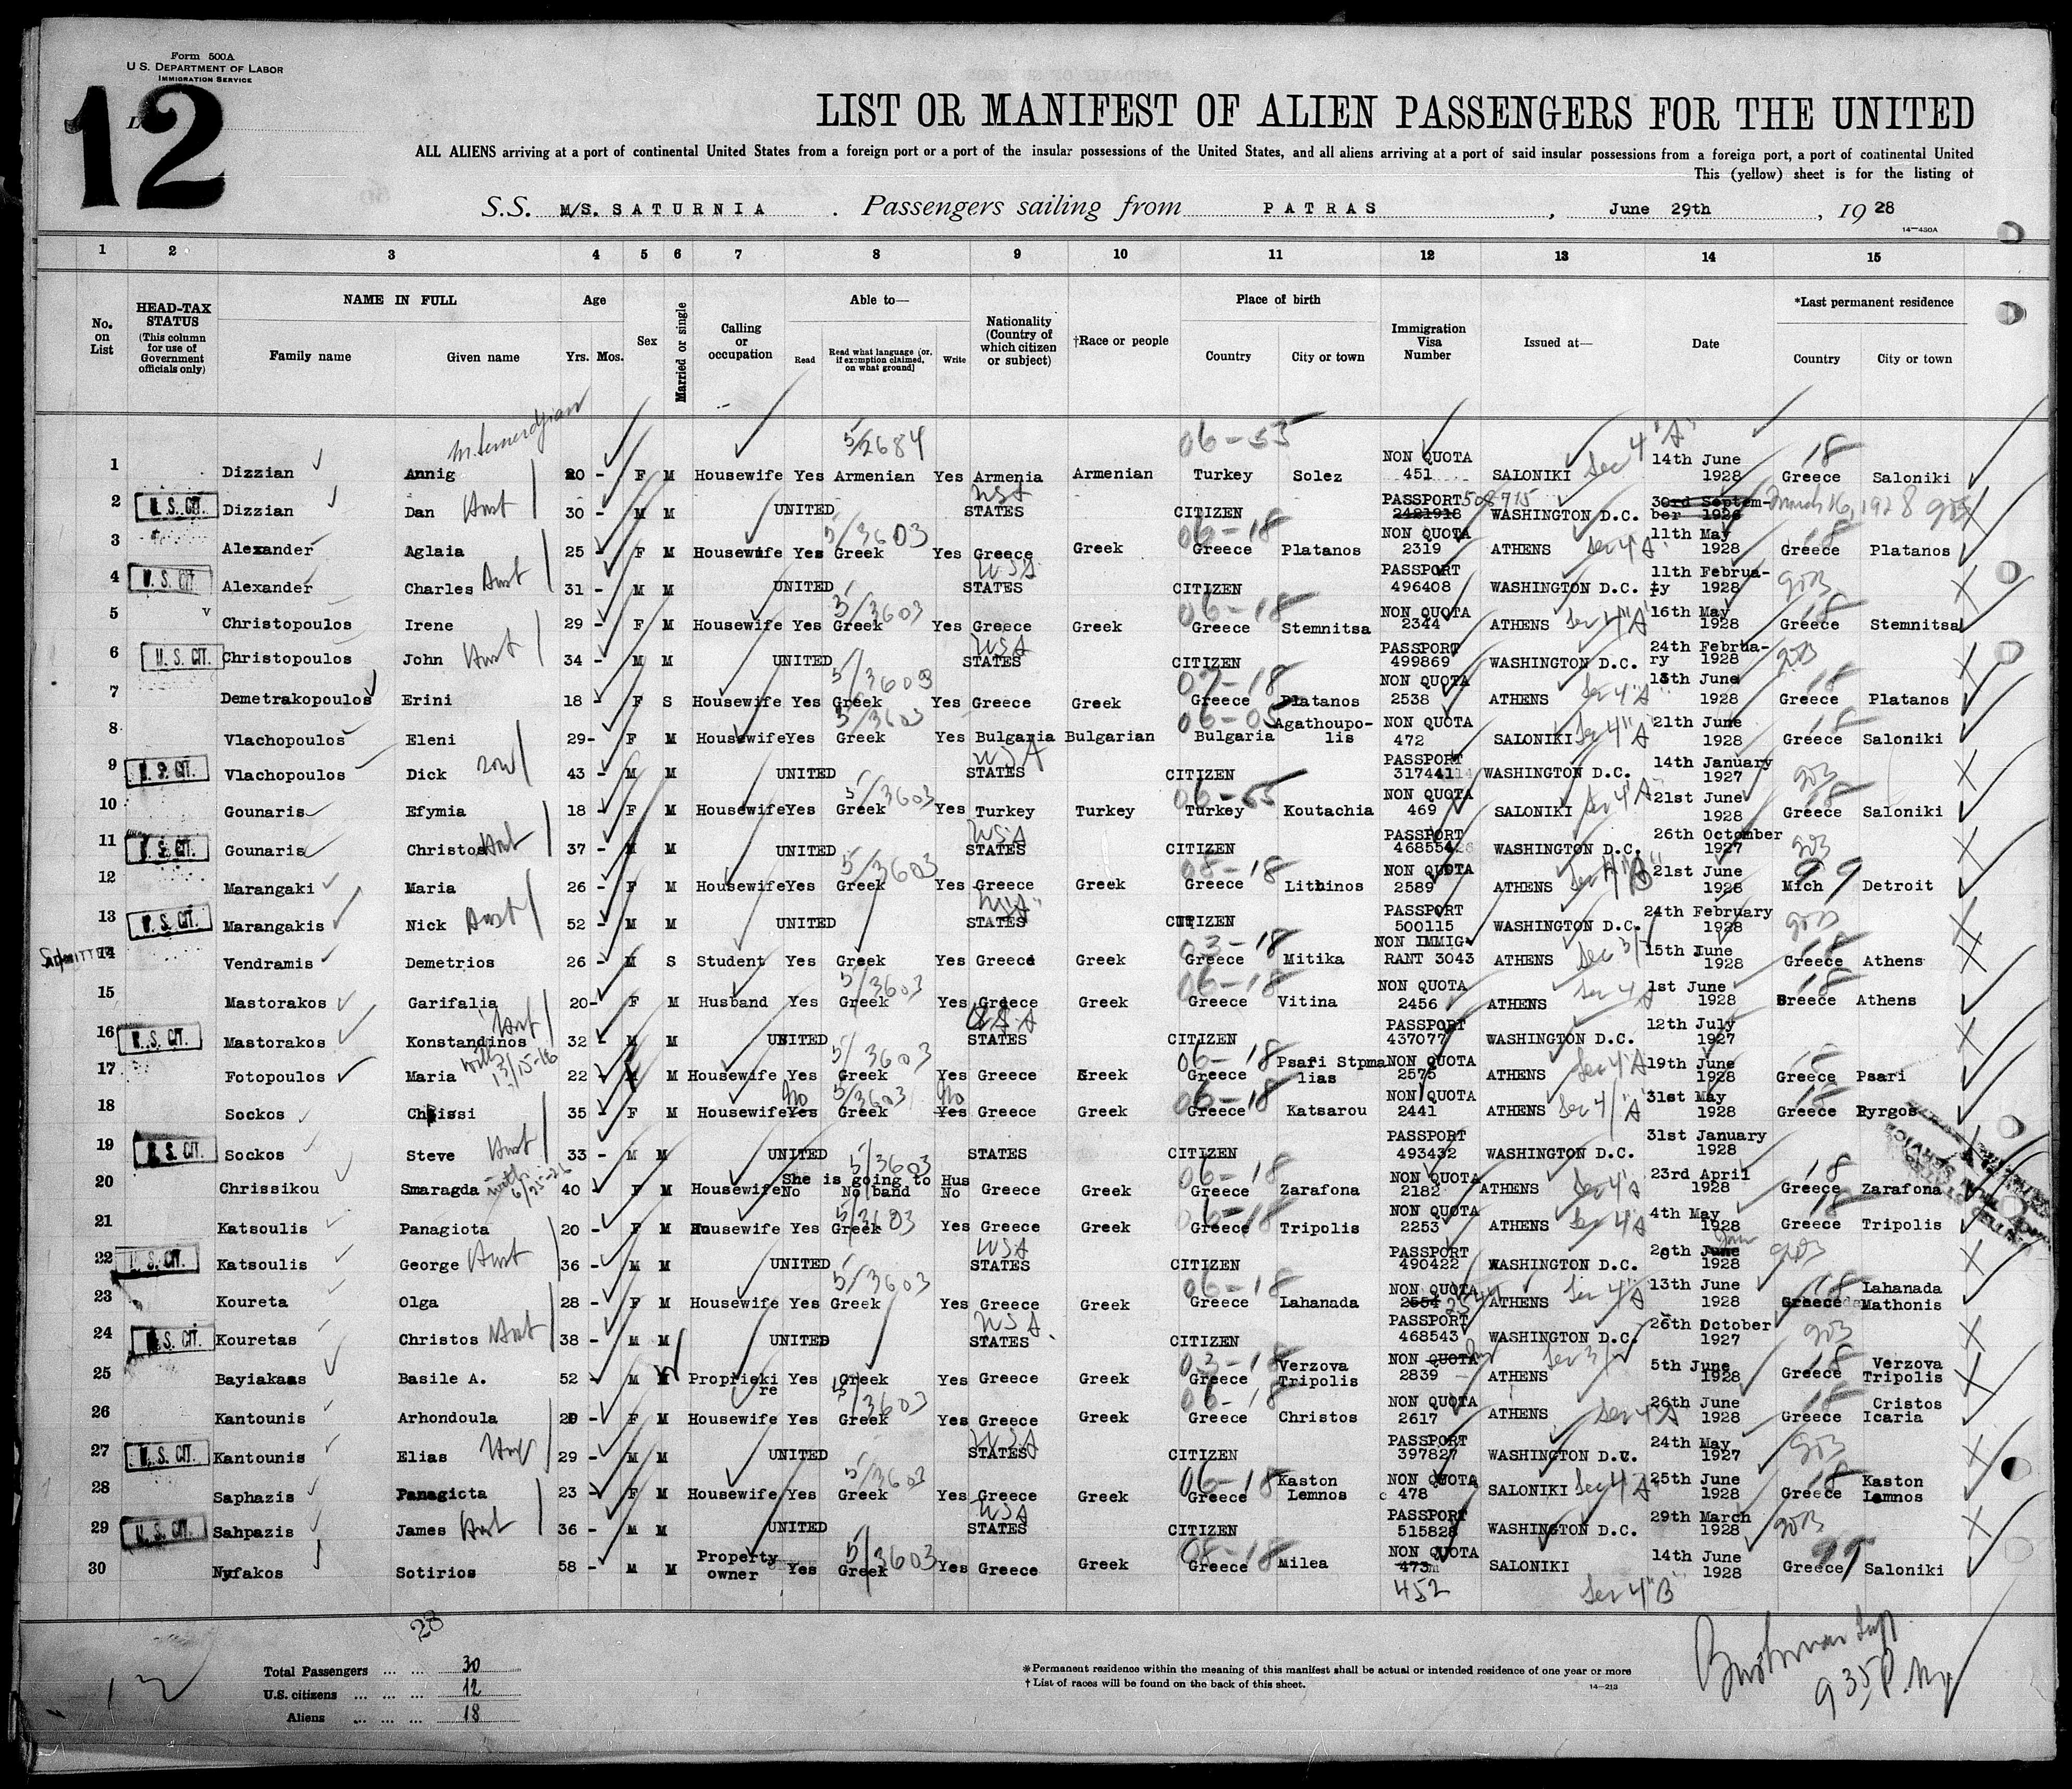 Form 500A
U. S. DEPARTMENT OF LABOR
IMMIGRATION SERVICE
12
LIST OR MANIFEST OF ALIEN PASSENGERS FOR THE UNITED
ALL ALIENS arriving at a port of continental United States from a foreign port or a port of the insular possessions of the United States, and all aliens arriving at a port of said insular possessions from a foreign port, a port of continental United
This (yellow) sheet is for the listing of
S.S. M/S. SATURNIA . Passengers sailing from PATRAS , June 29th , 19 28
14—430A
1 2 3 4 5 6 7 8 9 10 11 12 13 14 15
No. on List
HEAD-TAX STATUS (This column for use of Government officials only)
NAME IN FULL Family name Given name
Age Yrs. Mos.
Sex
Married or single
Calling or occupation
Able to— Read Read what language (or, if exemption claimed, on what ground) Write
Nationality (Country of which citizen or subject)
†Race or people
Place of birth Country City or town
Immigration Visa Number
Issued at—
Date
*Last permanent residence Country City or town
1 Dizzian Annig 20 - F M Housewife Yes 5/2684 Armenian Yes Armenia Armenian 06-55 Turkey Solez NON QUOTA 451 SALONIKI Sec 4 "A" 14th June 1928 18 Greece Saloniki
2 U. S. CIT. Dizzian Dan 30 - M M UNITED STATES USA CITIZEN PASSPORT 2421918 508715 WASHINGTON D.C. 30rd September 1926 March 16, 1928
3 Alexander Aglaia 25 - F M Housewife Yes 5/3603 Greek Yes Greece Greek 06-18 Greece Platanos NON QUOTA 2319 ATHENS Sec 4 "A" 11th May 1928 18 Greece Platanos
4 U. S. CIT. Alexander Charles 31 - M M UNITED STATES USA CITIZEN PASSPORT 496408 WASHINGTON D.C. 11th Februa-ty 1928
5 v Christopoulos Irene 29 - F M Housewife Yes 5/3603 Greek Yes Greece Greek 06-18 Greece Stemnitsa NON QUOTA 2344 ATHENS Sec 4 "A" 16th May 1928 18 Greece Stemnitsa
6 U. S. CIT. Christopoulos John 34 - M M UNITED STATES USA CITIZEN PASSPORT 499869 WASHINGTON D.C. 24th Februa-ry 1928
7 Demetrakopoulos Erini 18 - F S Housewife Yes 5/3603 Greek Yes Greece Greek 07-18 Greece Platanos NON QUOTA 2538 ATHENS Sec 4 "A" 13th June 1928 18 Greece Platanos
8 Vlachopoulos Eleni 29- F M Housewife Yes 5/3603 Greek Yes Bulgaria Bulgarian 06-05 Bulgaria Agathoupo-lis NON QUOTA 472 SALONIKI Sec 4 "A" 21th June 1928 18 Greece Saloniki
9 U. S. CIT. Vlachopoulos Dick 43 - M M UNITED STATES USA CITIZEN PASSPORT 317441 WASHINGTON D.C. 14th January 1927
10 Gounaris Efymia 18 - F M Housewife Yes 5/3603 Greek Yes Turkey Turkey 06-55 Turkey Koutachia NON QUOTA 469 SALONIKI Sec 4 "A" 21st June 1928 18 Greece Saloniki
11 U. S. CIT. Gounaris Christos 37 - M M UNITED STATES USA CITIZEN PASSPORT 468554 WASHINGTON D.C. 26th October 1927
12 Marangaki Maria 26 - F M Housewife Yes 5/3603 Greek Yes Greece Greek 08-18 Greece Lithinos NON QUOTA 2589 ATHENS 21st June 1928 99 Mich Detroit
13 U. S. CIT. Marangakis Nick 52 - M M UNITED STATES USA CITIZEN PASSPORT 500115 WASHINGTON D.C. 24th February 1928
14 Vendramis Demetrios 26 - M S Student Yes Greek Yes Greece Greek 03-18 Greece Mitika NON IMMIG-RANT 3043 ATHENS Sec 3 15th June 1928 18 Greece Athens
15 Mastorakos Garifalia 20- F M Husband Yes 5/3603 Greek Yes Greece Greek 06-18 Greece Vitina NON QUOTA 2456 ATHENS Sec 4 A 1st June 1928 18 Breece Athens
16 U. S. CIT. Mastorakos Konstandinos 32 - M M UNITED STATES USA CITIZEN PASSPORT 437077 WASHINGTON D.C. 12th July 1927
17 Fotopoulos Maria 22 M Housewife Yes 5/3603 Greek Yes Greece Greek 06-18 Greece Psari Stpma lias NON QUOTA 2575 ATHENS Sec 4 "A" 19th June 1928 18 Greece Psari
18 Sockos Chrissi 35 - F M Housewife Yes No 5/3603 Greek Yes No Greece Greek 06-18 Greece Katsarou NON QUOTA 2441 ATHENS Sec 4 "A" 31st May 1928 18 Greece Pyrgos
19 U. S. CIT. Sockos Steve 33 - M M UNITED STATES CITIZEN PASSPORT 493432 WASHINGTON D.C. 31st January 1928
20 Chrissikou Smaragda 40 - F M Housewife No 5/3603 She is going to Hus No band No Greece Greek 06-18 Greece Zarafona NON QUOTA 2182 ATHENS Sec 4 "A" 23rd April 1928 18 Greece Zarafona
21 Katsoulis Panagiota 20 - F M Housewife Yes 5/3603 Greek Yes Greece Greek 06-18 Greece Tripolis NON QUOTA 2253 ATHENS Sec 4 "A" 4th May 1928 18 Greece Tripolis
22 U. S. CIT. Katsoulis George 36 - M M UNITED STATES USA CITIZEN PASSPORT 490422 WASHINGTON D.C. 20th June Jan 1928
23 Koureta Olga 28 - F M Housewife Yes 5/3603 Greek Yes Greece Greek 06-18 Greece Lahanada NON QUOTA 2554 ATHENS Sec 4 "A" 13th June 1928 18 Greece Lahanada Mathonis
24 U. S. CIT. Kouretas Christos 38 - M M UNITED STATES USA CITIZEN PASSPORT 468543 WASHINGTON D.C. 26th October 1927
25 Bayiakaas Basile A. 52 - M M Proprieki re Yes Greek Yes Greece Greek 03-18 Greece Verzova Tripolis NON QUOTA 2839 ATHENS Sec 3 5th June 1928 18 Greece Verzova Tripolis
26 Kantounis Arhondoula 20 - F M Housewife Yes 5/3603 Greek Yes Greece Greek 06-18 Greece Christos NON QUOTA 2617 ATHENS Sec 4 "A" 26th June 1928 18 Greece Cristos Icaria
27 U. S. CIT. Kantounis Elias 29 - M M UNITED STATES USA CITIZEN PASSPORT 397827 WASHINGTON D.C. 24th May 1927
28 Saphazis Panagicta 23 - F M Housewife Yes 5/3603 Greek Yes Greece Greek 06-18 Greece Kaston Lemnos NON QUOTA 478 SALONIKI Sec 4 "A" 25th June 1928 18 Greece Kaston Lemnos
29 U. S. CIT. Sahpazis James 36 - M M UNITED STATES USA CITIZEN PASSPORT 515828 WASHINGTON D.C. 29th March 1928
30 Nyfakos Sotirios 58 - M M Property owner Yes 5/3603 Greek Yes Greece Greek 08-18 Greece Milea NON QUOTA 473 452 SALONIKI Sec 4 "B" 14th June 1928 99 Greece Saloniki
28
Total Passengers ... ... 30
U.S. citizens ... ... ... 12
Aliens ... ... ... 18
*Permanent residence within the meaning of this manifest shall be actual or intended residence of one year or more
† List of races will be found on the back of this sheet.
14—213